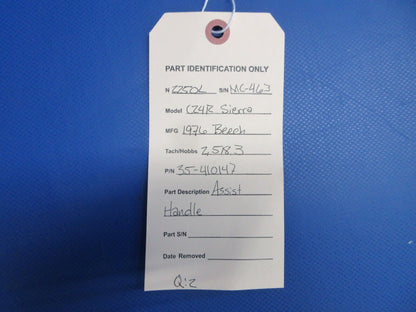 PART IDENTIFICATION ONLY
N 2250L S/N MC-463
Model C24R Sierra
MFG 1976 Beech
Tach/Hobbs 2,578.3
P/N 35-410147
Part Description Assist
Handle
Part S/N
Date Removed
Q:2